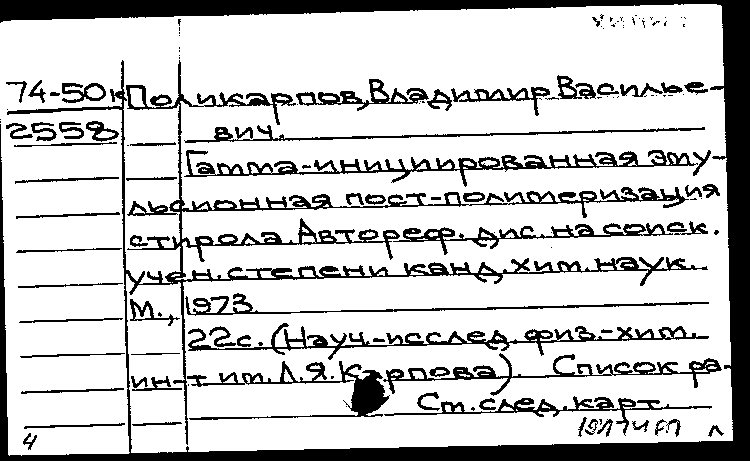 74-50к Поликарпов, Владимир Василье-
2558 вич.
Гамма-инициированная эму-
льсионная пост-полимеризация
стирола. Автореф. дис. на соиск.
учен. степени канд. хим. наук.
М., 1973.
22с. (Науч.-исслед. физ.-хим.
ин-т им. Л.Я. Карпова). Список ра-
Ст. след. карт.
4 л